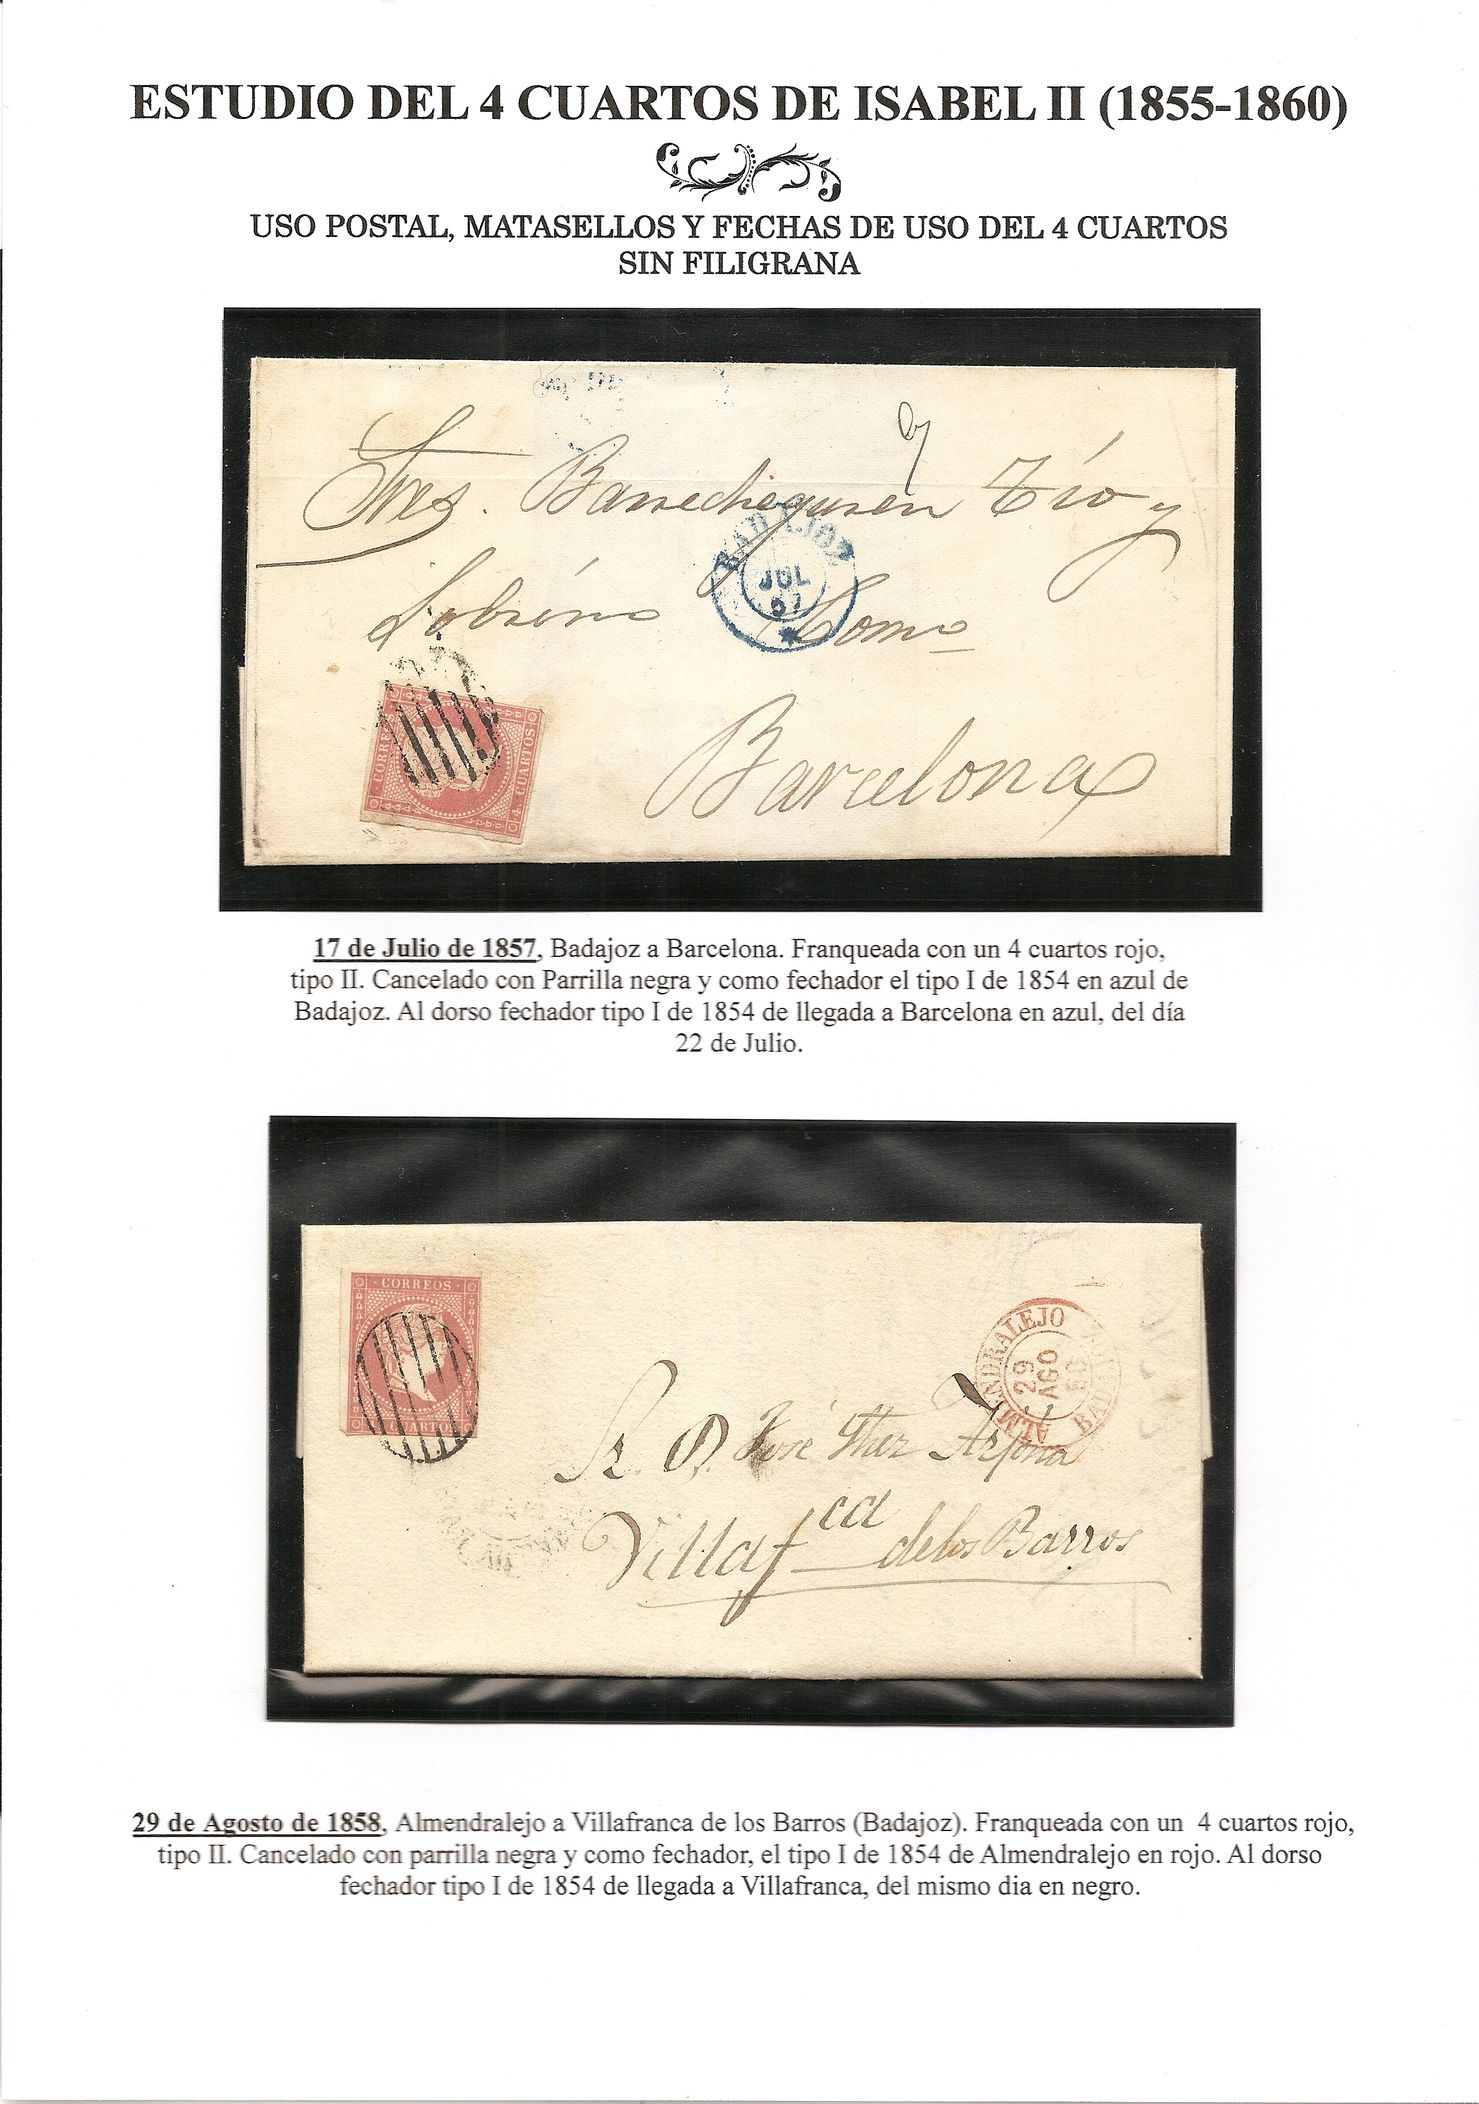 ESTUDIO DEL 4 CUARTOS DE ISABEL II (1855-1860)
USO POSTAL, MATASELLOS Y FECHAS DE USO DEL 4 CUARTOS
SIN FILIGRANA
Sres. Barrecheguren Tío y
Sobrino Como
Barcelona
BADAJOZ
JUL
57
CORREOS
4 CUARTOS
17 de Julio de 1857, Badajoz a Barcelona. Franqueada con un 4 cuartos rojo,
tipo II. Cancelado con Parrilla negra y como fechador el tipo I de 1854 en azul de
Badajoz. Al dorso fechador tipo I de 1854 de llegada a Barcelona en azul, del día
22 de Julio.
CORREOS
CUARTOS
ALMENDRALEJO
29
AGO
Sr. D. José Arjona
Villafca de los Barros
29 de Agosto de 1858, Almendralejo a Villafranca de los Barros (Badajoz). Franqueada con un 4 cuartos rojo,
tipo II. Cancelado con parrilla negra y como fechador, el tipo I de 1854 de Almendralejo en rojo. Al dorso
fechador tipo I de 1854 de llegada a Villafranca, del mismo dia en negro.